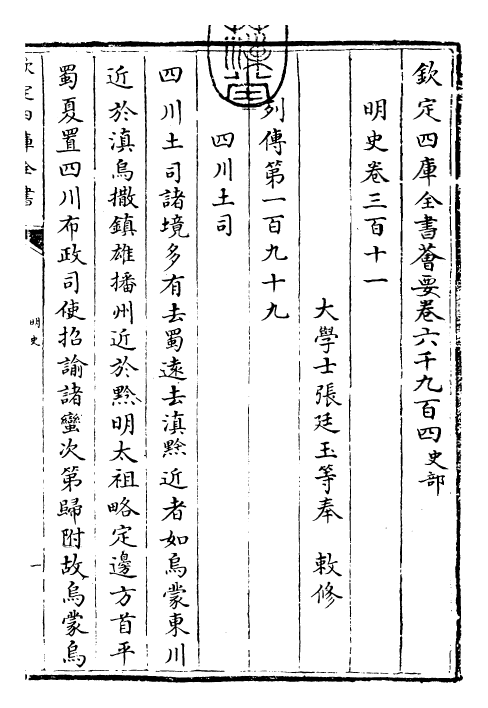 欽定四庫全書薈要卷六千九百四史部
明史卷三百十一
大學士張廷玉等奉 敕修
列傳第一百九十九
四川土司
四川土司諸境多有去蜀遠去滇黔近者如烏蒙東川
近於滇烏撒鎮雄播州近於黔明太祖略定邊方首平
蜀夏置四川布政司使招諭諸蠻次第歸附故烏蒙烏
欽定四庫全書
明史
一